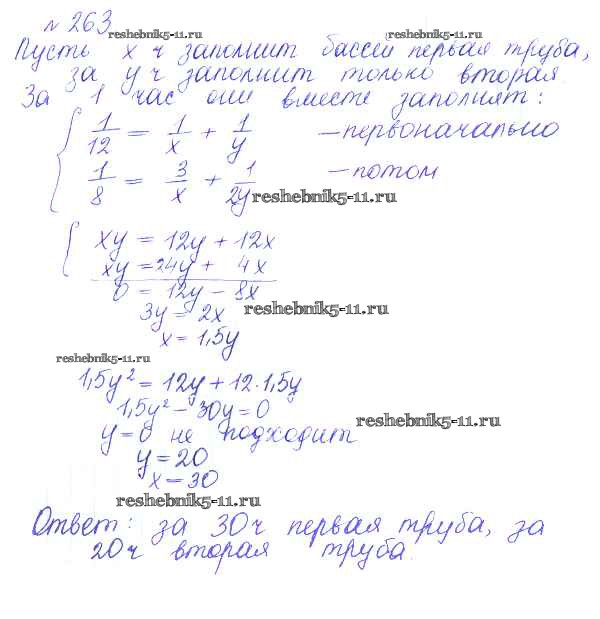 № 263
reshebnik5-11.ru
Пусть x ч заполнит бассейн первая труба,
за y ч заполнит только вторая.
За 1 час они вместе заполнят:
1/12 = 1/x + 1/y — первоначально
1/8 = 3/x + 1/2y — потом
reshebnik5-11.ru
xy = 12y + 12x
xy = 24y + 4x
0 = 12y – 8x
3y = 2x
reshebnik5-11.ru
x = 1,5y
reshebnik5-11.ru
1,5y² = 12y + 12·1,5y
1,5y² – 30y = 0
reshebnik5-11.ru
y = 0 не подходит
y = 20
x = 30
reshebnik5-11.ru
Ответ: за 30ч первая труба, за
20ч вторая труба.